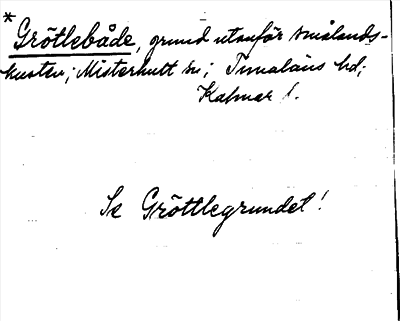 * Grötlebåde, grund utanför Smålands-
kusten; Misterhult sn; Tunaläns hd;
Kalmar l.
Se Gröttlegrundet!